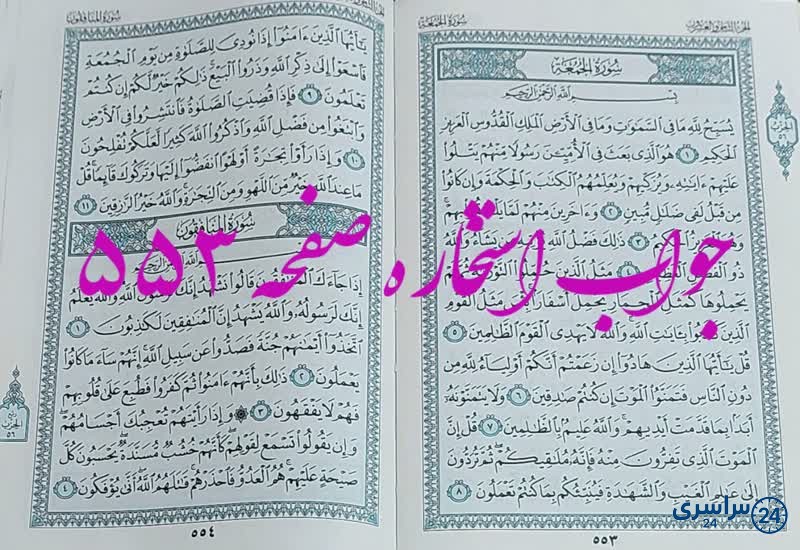 الجزء الثامن والعشرون
سورة الجمعة
سُورَةُ الجُمُعَةِ
بِسْمِ اللَّهِ الرَّحْمَٰنِ الرَّحِيمِ
يُسَبِّحُ لِلَّهِ مَا فِي السَّمَٰوَٰتِ وَمَا فِي الْأَرْضِ الْمَلِكِ الْقُدُّوسِ الْعَزِيزِ
الْحَكِيمِ ١ هُوَ الَّذِي بَعَثَ فِي الْأُمِّيِّـۧنَ رَسُولًا مِّنْهُمْ يَتْلُوا
عَلَيْهِمْ ءَايَٰتِهِ وَيُزَكِّيهِمْ وَيُعَلِّمُهُمُ الْكِتَٰبَ وَالْحِكْمَةَ وَإِن كَانُوا
مِن قَبْلُ لَفِي ضَلَٰلٍ مُّبِينٍ ٢ وَءَاخَرِينَ مِنْهُمْ لَمَّا يَلْحَقُوا بِهِمْ
وَهُوَ الْعَزِيزُ الْحَكِيمُ ٣ ذَٰلِكَ فَضْلُ اللَّهِ يُؤْتِيهِ مَن يَشَاءُ وَاللَّهُ
ذُو الْفَضْلِ الْعَظِيمِ ٤ مَثَلُ الَّذِينَ حُمِّلُوا التَّوْرَىٰةَ ثُمَّ لَمْ
يَحْمِلُوهَا كَمَثَلِ الْحِمَارِ يَحْمِلُ أَسْفَارًا بِئْسَ مَثَلُ الْقَوْمِ
الَّذِينَ كَذَّبُوا بِـَٔايَٰتِ اللَّهِ وَاللَّهُ لَا يَهْدِي الْقَوْمَ الظَّٰلِمِينَ ٥
قُلْ يَٰأَيُّهَا الَّذِينَ هَادُوا إِن زَعَمْتُمْ أَنَّكُمْ أَوْلِيَاءُ لِلَّهِ مِن
دُونِ النَّاسِ فَتَمَنَّوُا الْمَوْتَ إِن كُنتُمْ صَٰدِقِينَ ٦ وَلَا يَتَمَنَّوْنَهُ
أَبَدًا بِمَا قَدَّمَتْ أَيْدِيهِمْ وَاللَّهُ عَلِيمٌ بِالظَّٰلِمِينَ ٧ قُلْ إِنَّ
الْمَوْتَ الَّذِي تَفِرُّونَ مِنْهُ فَإِنَّهُ مُلَٰقِيكُمْ ثُمَّ تُرَدُّونَ
إِلَىٰ عَٰلِمِ الْغَيْبِ وَالشَّهَٰدَةِ فَيُنَبِّئُكُم بِمَا كُنتُمْ تَعْمَلُونَ ٨
الحزب
٥٦
٥٥٣
سورة المنافقون
يَٰأَيُّهَا الَّذِينَ ءَامَنُوا إِذَا نُودِيَ لِلصَّلَوٰةِ مِن يَوْمِ الْجُمُعَةِ
فَاسْعَوْا إِلَىٰ ذِكْرِ اللَّهِ وَذَرُوا الْبَيْعَ ذَٰلِكُمْ خَيْرٌ لَّكُمْ إِن كُنتُمْ
تَعْلَمُونَ ٩ فَإِذَا قُضِيَتِ الصَّلَوٰةُ فَانتَشِرُوا فِي الْأَرْضِ
وَابْتَغُوا مِن فَضْلِ اللَّهِ وَاذْكُرُوا اللَّهَ كَثِيرًا لَّعَلَّكُمْ تُفْلِحُونَ
١٠ وَإِذَا رَأَوْا تِجَٰرَةً أَوْ لَهْوًا انفَضُّوا إِلَيْهَا وَتَرَكُوكَ قَائِمًا قُلْ
مَا عِندَ اللَّهِ خَيْرٌ مِّنَ اللَّهْوِ وَمِنَ التِّجَٰرَةِ وَاللَّهُ خَيْرُ الرَّٰزِقِينَ ١١
سُورَةُ المُنَافِقُونَ
بِسْمِ اللَّهِ الرَّحْمَٰنِ الرَّحِيمِ
إِذَا جَاءَكَ الْمُنَٰفِقُونَ قَالُوا نَشْهَدُ إِنَّكَ لَرَسُولُ اللَّهِ وَاللَّهُ يَعْلَمُ
إِنَّكَ لَرَسُولُهُ وَاللَّهُ يَشْهَدُ إِنَّ الْمُنَٰفِقِينَ لَكَٰذِبُونَ ١
اتَّخَذُوا أَيْمَٰنَهُمْ جُنَّةً فَصَدُّوا عَن سَبِيلِ اللَّهِ إِنَّهُمْ سَاءَ مَا كَانُوا
يَعْمَلُونَ ٢ ذَٰلِكَ بِأَنَّهُمْ ءَامَنُوا ثُمَّ كَفَرُوا فَطُبِعَ عَلَىٰ قُلُوبِهِمْ
فَهُمْ لَا يَفْقَهُونَ ٣ ۞ وَإِذَا رَأَيْتَهُمْ تُعْجِبُكَ أَجْسَامُهُمْ
وَإِن يَقُولُوا تَسْمَعْ لِقَوْلِهِمْ كَأَنَّهُمْ خُشُبٌ مُّسَنَّدَةٌ يَحْسَبُونَ كُلَّ
صَيْحَةٍ عَلَيْهِمْ هُمُ الْعَدُوُّ فَاحْذَرْهُمْ قَٰتَلَهُمُ اللَّهُ أَنَّىٰ يُؤْفَكُونَ ٤
الحزب
٥٦
٥٥٤
جواب استخاره صفحه ۵۵۳
سراسری
24
24